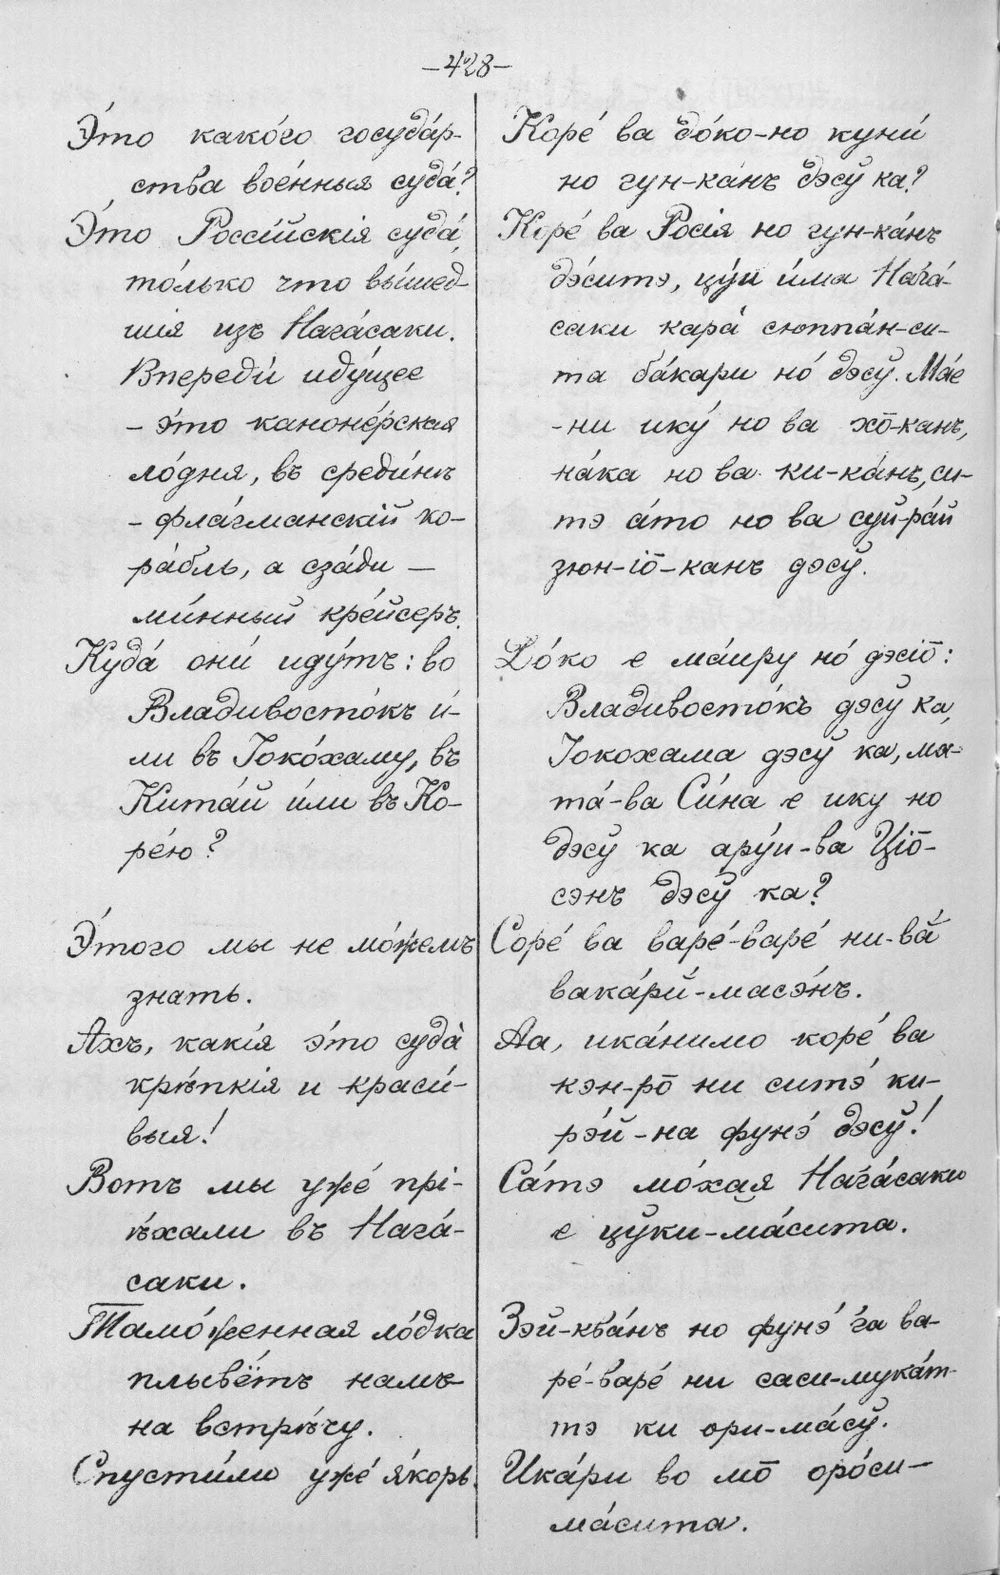 –428–
Э́то како́го госуда́р-
ства вое́нныя суда́?
Э́то Россі́йскія суда́,
то́лько что вы́шед-
шія изъ Нагаса́ки.
Впереди́ иду́щее
– э́то канонéрская
ло́дня, въ среди́нѣ
– фла́гманскій ко-
ра́бль, а сза́ди —
ми́нный кре́йсеръ.
Куда́ они́ иду́тъ: во
Владивосто́къ и́-
ли въ Іоко́хаму, въ
Кита́й и́ли въ Ко-
ре́ю?
Э́того мы не мо́жемъ
знать.
Ахъ, какі́я э́то суда̀
крѣпкія и краси́-
выя!
Вотъ мы уже́ прі-
ѣхали въ Нага́-
саки.
Тамо́женная ло́дка
плывётъ намъ
на встрѣчу.
Спусти́ли уже́ я́корь.
Коре́ ва до́ко-но куни́
но гун-ка́нъ дэсў ка?
Коре́ ва Росія но гун-ка́нъ
дэ́ситэ, цу́и и́ма Нага́-
саки кара́ сюппа́н-си-
та ба́кари но́ дэсў. Ма́е
-ни ику́ но ва хо̄-канъ,
на́ка но ва ки-ка́нъ, си-
тэ а́то но ва суй-ра́й
зюн-іо̄-канъ дэсў.
До́ко е ма́иру но́ дэсіо̄:
Владивосто́къ дэсў ка,
Іокохама дэсў ка, ма-
та́-ва Си́на е ику но
дэсў ка ару́и-ва Ціо̄-
сэнъ дэсў ка?
Соре́ ва варе́-варе́ ни-ва́
вака́рй-масэ́нъ.
Аа, ика́нимо коре́ ва
кэн-ро̄ ни ситэ́ ки-
рэ́й-на фунэ́ дэсў!
Са́тэ мо́хая Нага́саки
е цўки-ма́сита.
Зэй-ква́нъ но фунэ́ га ва-
ре́-варе́ ни саси-мука́т-
тэ ки ори-ма́сў.
Ика́ри во мо̄ оро́си-
ма́сита.